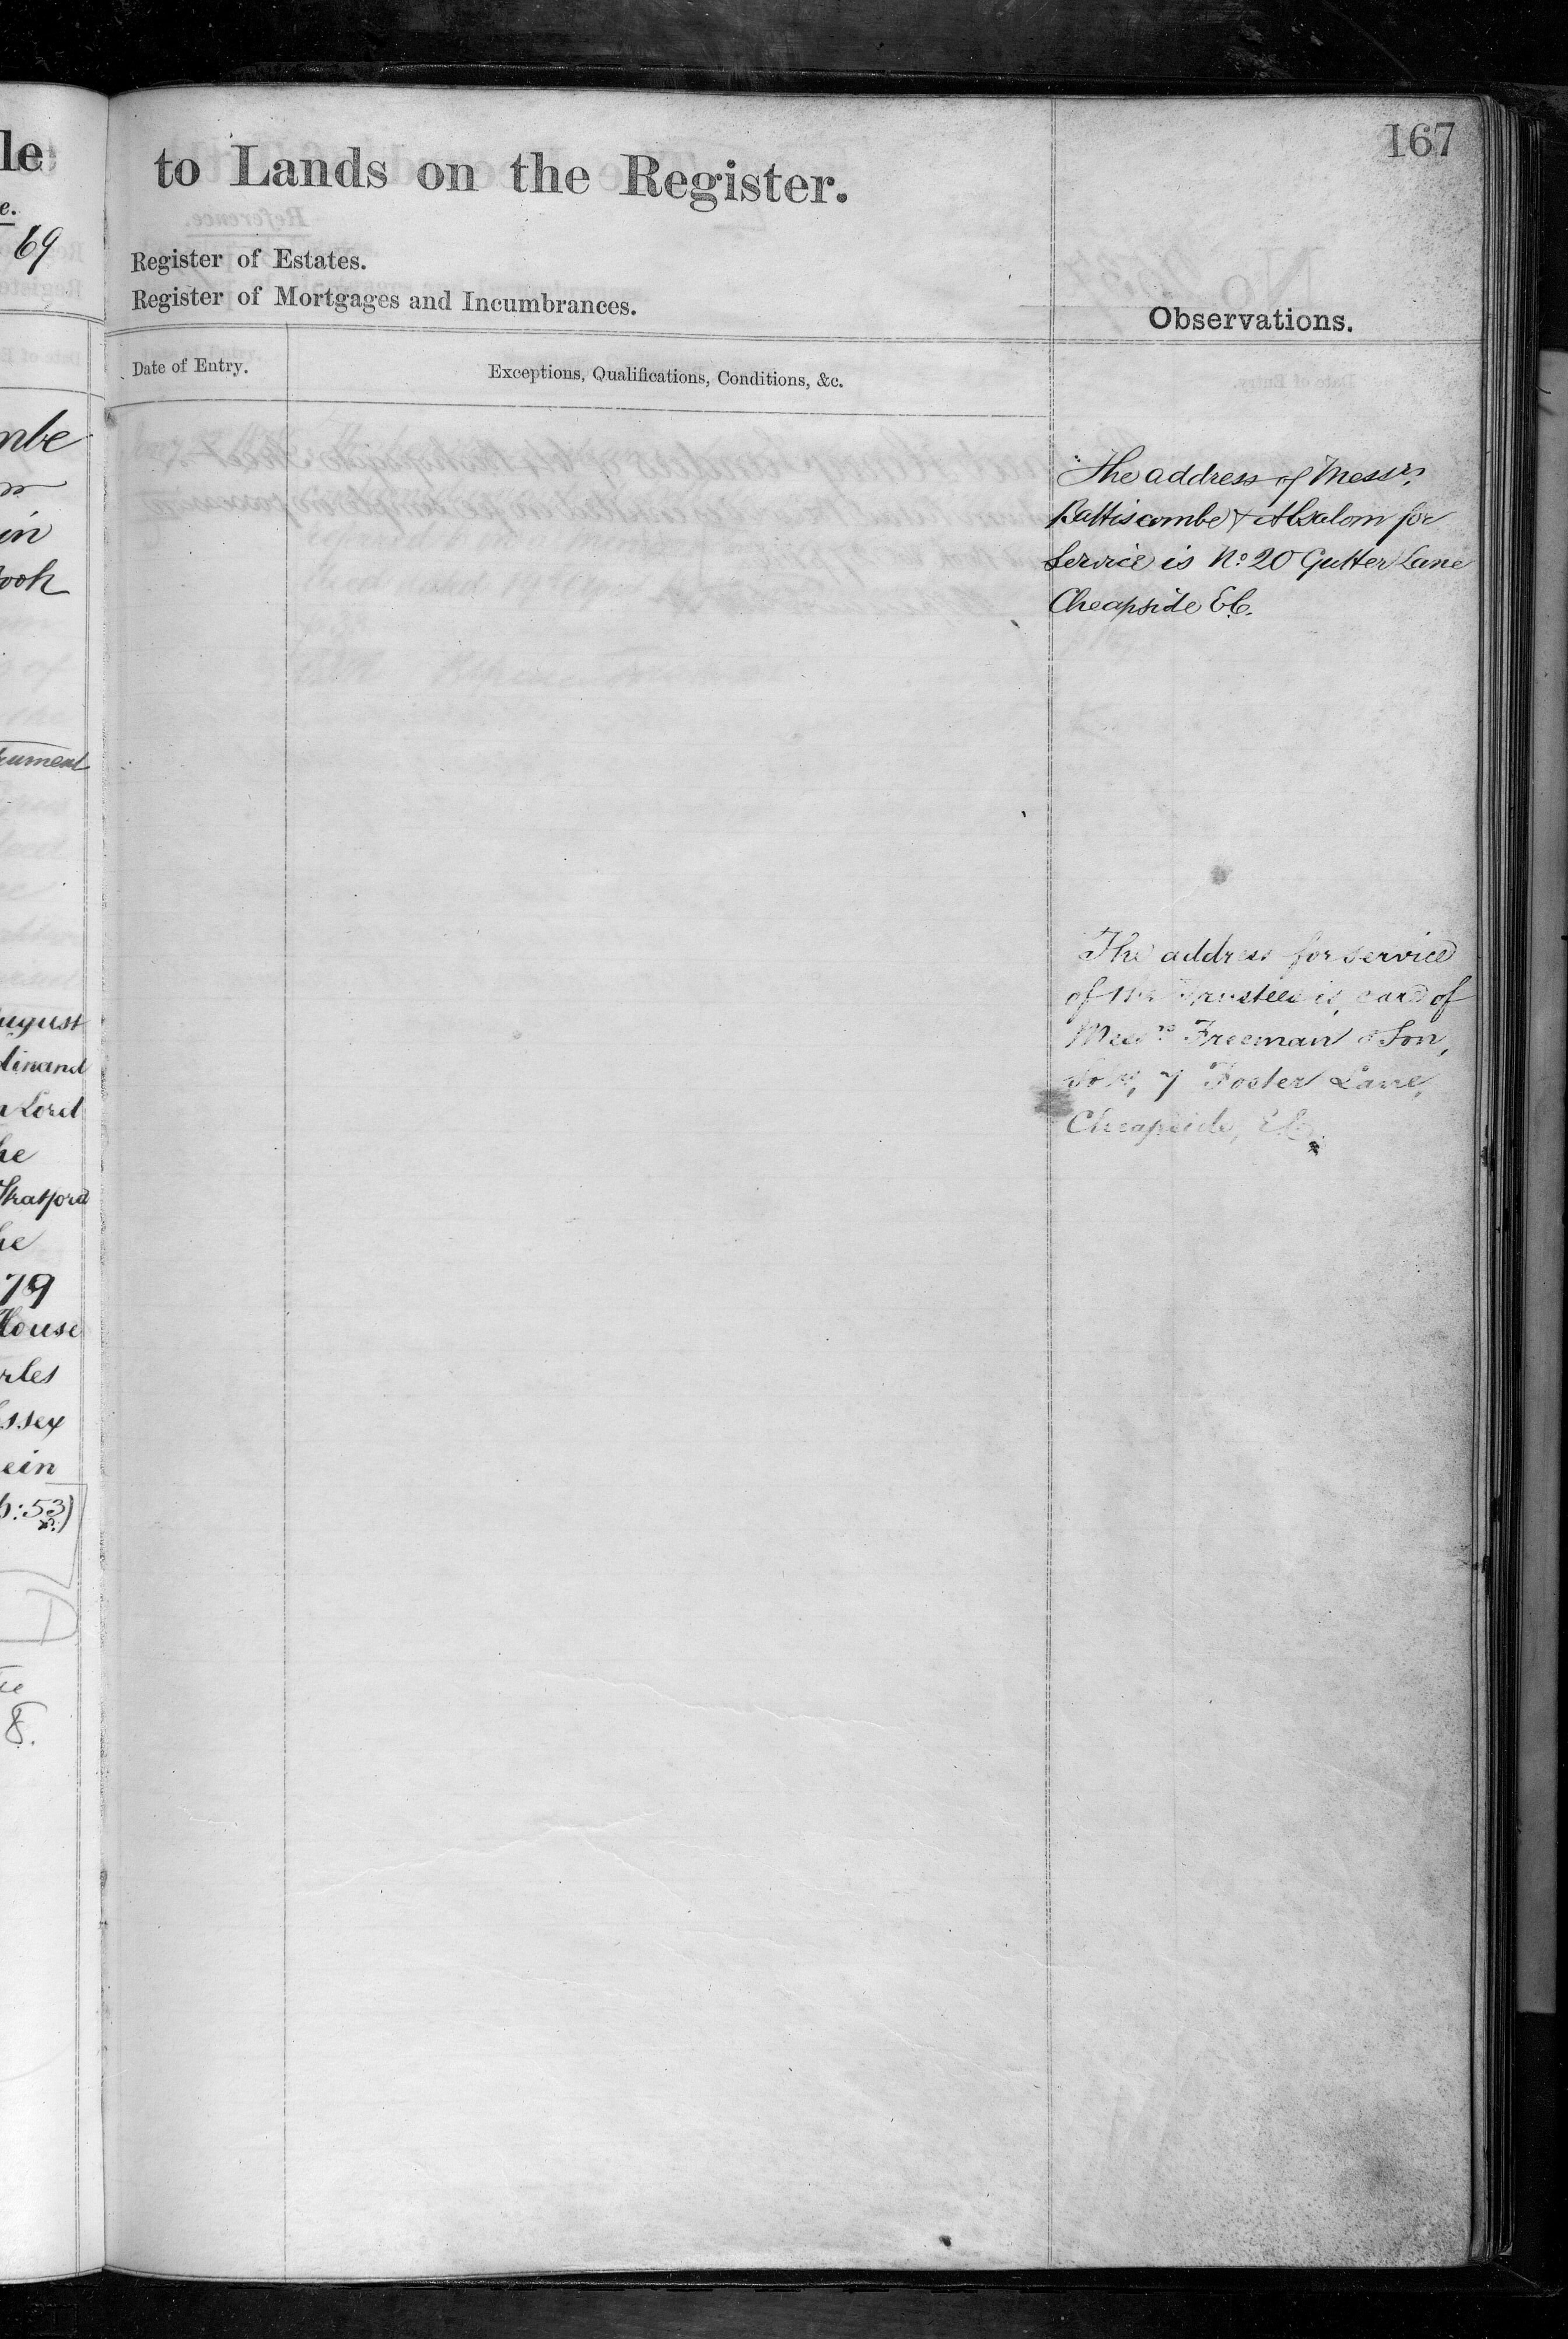 le
e.
69
mbe
in
ook
rument
ugust
dinand
n Lord
he
Stratford
he
79
House
rles
ssex
ein
6:53)
8.
167
to Lands on the Register.
Register of Estates.
Register of Mortgages and Incumbrances.
Observations.
Date of Entry.
Exceptions, Qualifications, Conditions, &c.
The address of Messrs.
Battiscombe & Absalom for
Service is No. 20 Gutter Lane
Cheapside E.C.
The address for service
of the Trustees is, care of
Messrs Freeman & Son,
Solrs, 7 Foster Lane,
Cheapside, E.C.